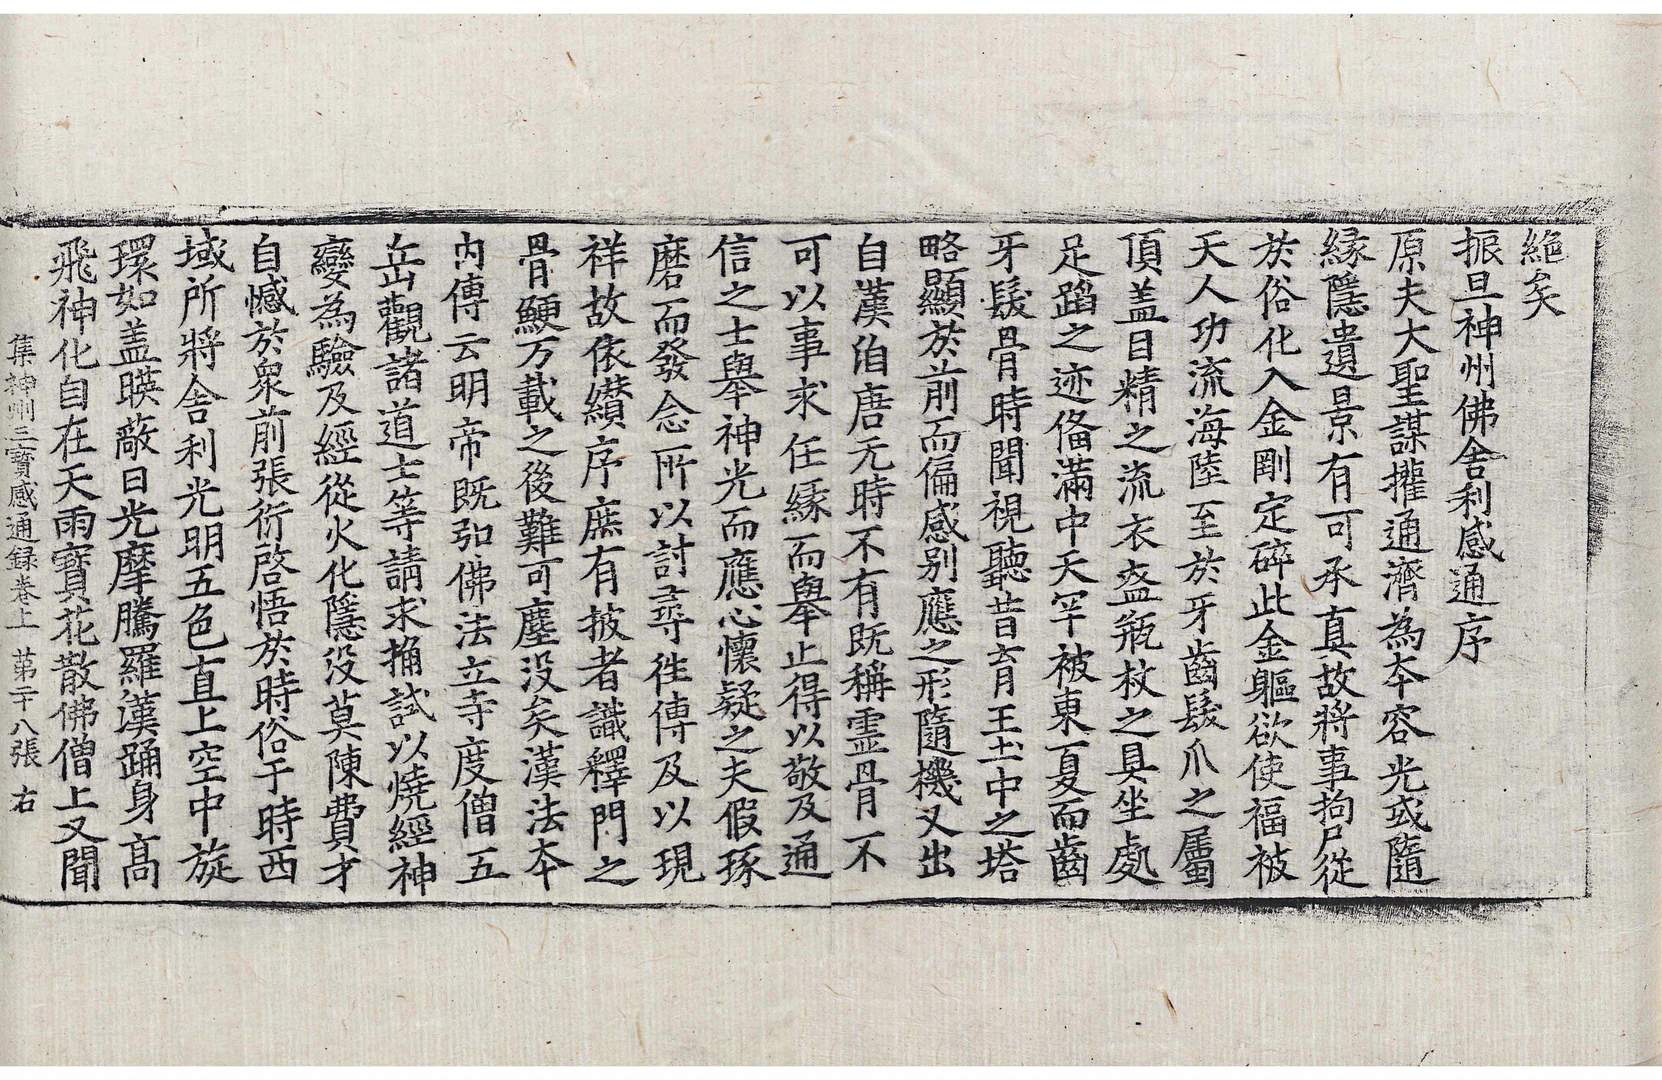 絶矣
振旦神州佛舎利感通序
原夫大聖謀攉通濟為夲容光或隨
縁隱遺景有可承真故將事拘尸從
扵俗化入金剛定碎此金軀欲使福被
天人功流海陸至扵牙齒髮爪之屬
頂盖目精之流衣盔瓶杖之具坐處
足蹈之迹俻滿中天罕被東夏而齒
牙髮骨時聞視聽昔育王土中之塔
略顯扵前而偏感別應之形隨機又出
自漢洎唐无時不有既稱霊骨不
可以事求任縁而舉止得以敬及通
信之士舉神光而應心懷疑之夫假琢
磨而發念所以討尋徃傳及以現
祥故依纉序庶有披者識釋門之
骨鯁万載之後難可塵没矣漢法夲
内傳云明帝既弘佛法立寺度僧五
岳觀諸道士等請求捔試以燒經神
變為驗及經從火化隱没莫陳費才
自憾扵衆前張衍啓悟扵時俗于時西
域所將舎利光明五色直上空中旋
環如盖暎蔽日光摩騰羅漢踊身高
飛神化自在天雨寳花散佛僧上又聞
集神州三寳感通録卷上 第二十八張 右